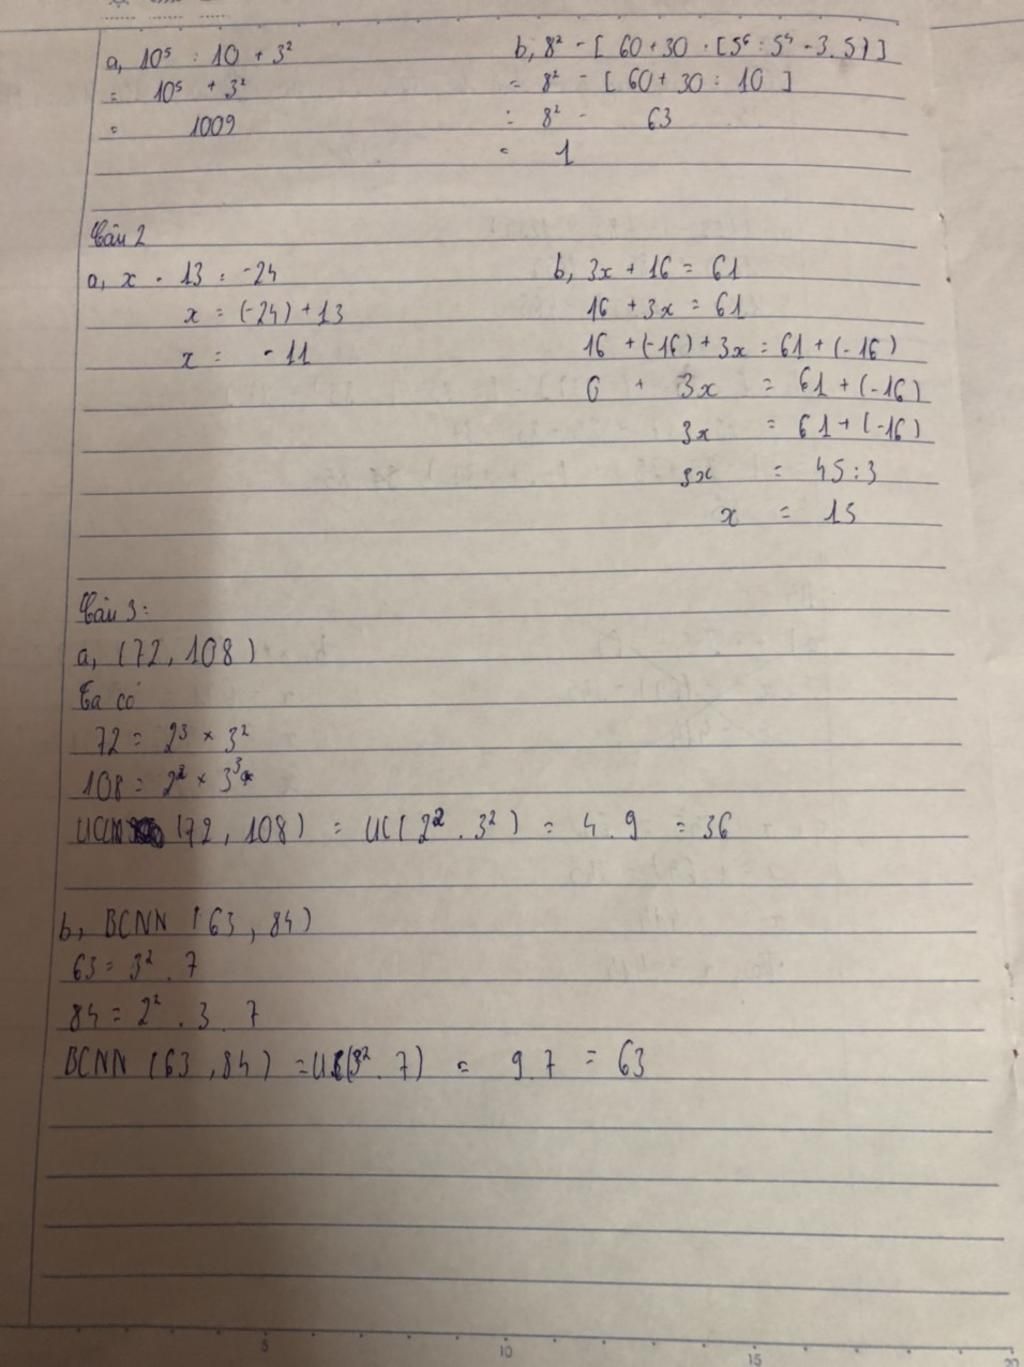 a, 10⁵ : 10 + 3²
= 10⁵ + 3²
= 1009
b, 8² - [ 60 + 30 : [5⁶ : 5⁴ - 3.5)]
= 8² - [ 60 + 30 : 10 ]
= 8² - 63
= 1
Câu 2
a, x - 13 = -24
x = (-24) + 13
x = -11
b, 3x + 16 = 61
16 + 3x = 61
16 + (-16) + 3x = 61 + (-16)
0 + 3x = 61 + (-16)
3x = 61 + (-16)
3x = 45 : 3
x = 15
Câu 3:
a, (72, 108)
Ta có
72 = 2³ × 3²
108 = 2² × 3³
(72, 108) = UC( 2² . 3² ) = 4 . 9 = 36
b, BCNN (63, 84)
63 = 3² . 7
84 = 2² . 3 . 7
BCNN (63, 84) = (3² . 7) = 9.7 = 63
5
10
15
20